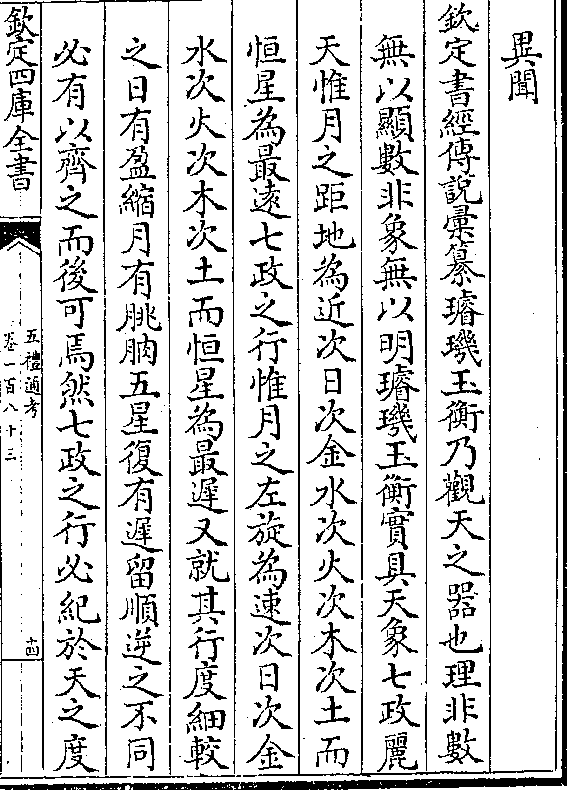 異聞
欽定書經傳説彙纂璿璣玉衡乃觀天之器也理非數
無以顯數非象無以明璿璣玉衡實具天象七政麗
天惟月之距地為近次日次金水次火次木次土而
恒星為最遠七政之行惟月之左旋為速次日次金
水次火次木次土而恒星為最遲又就其行度細較
之日有盈縮月有朓朒五星復有遲留順逆之不同
必有以齊之而後可焉然七政之行必紀於天之度
欽定四庫全書
五禮通考
卷一百八十三
十四